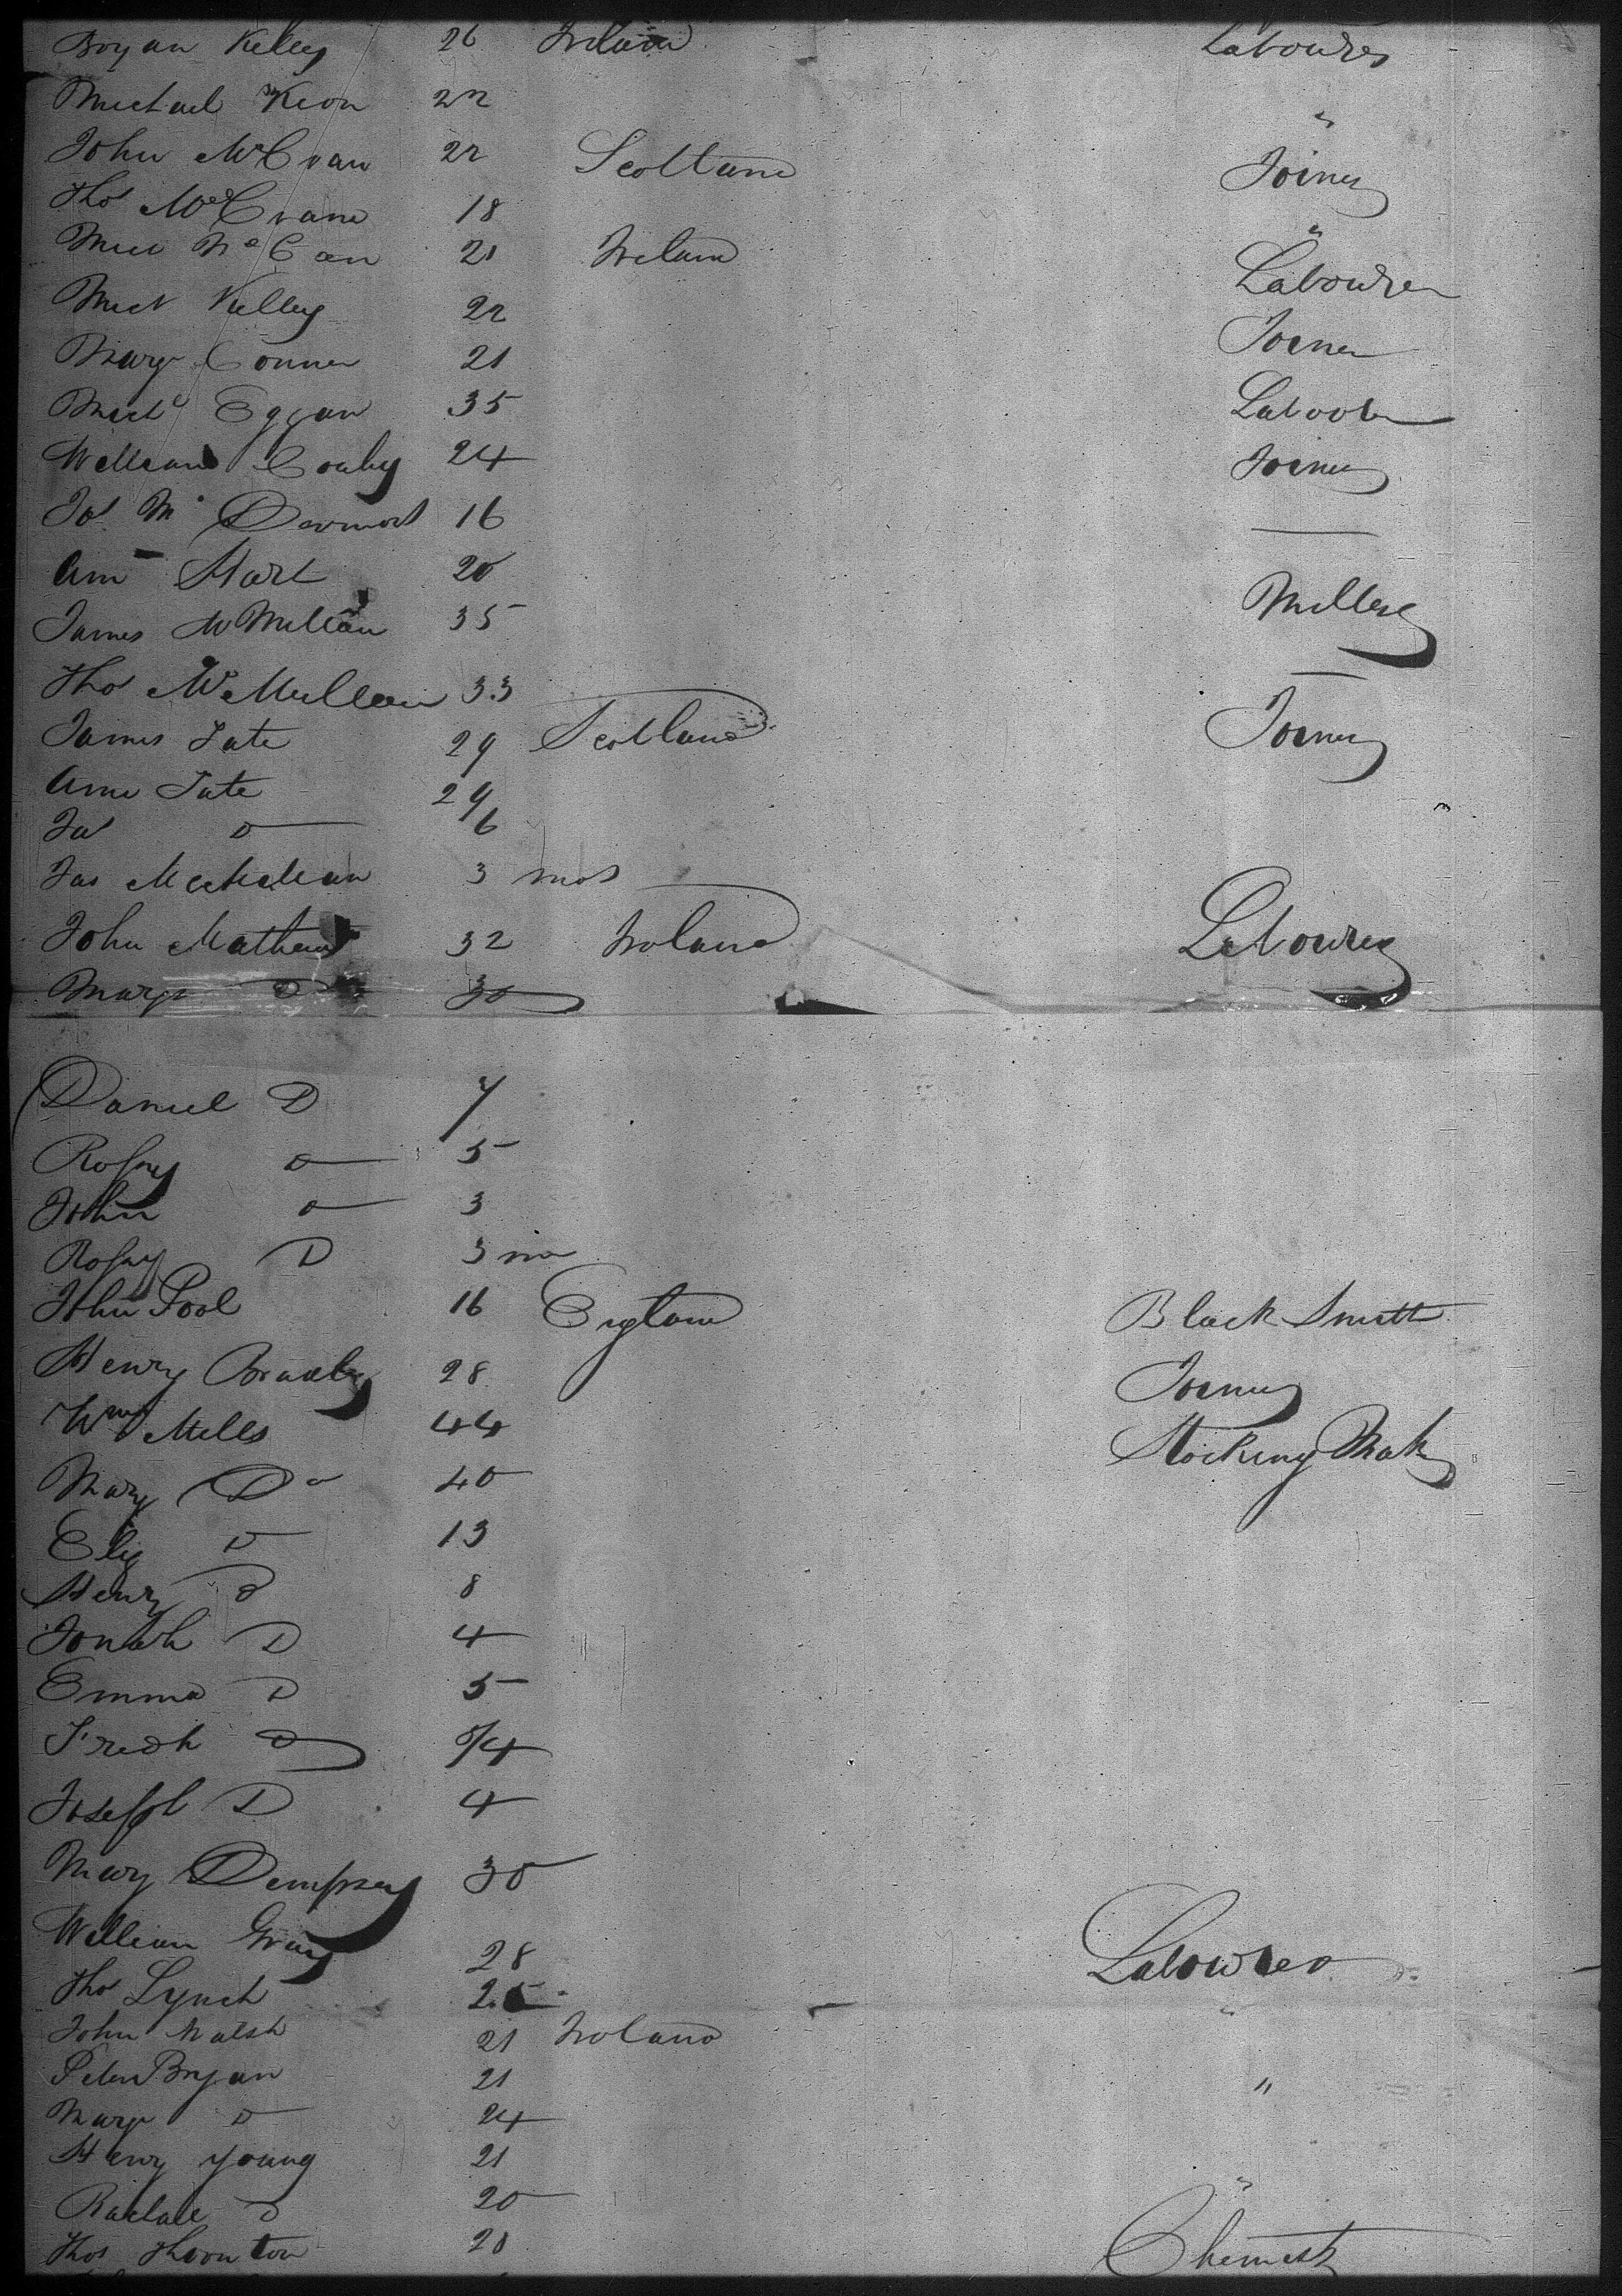 Bryan Kelley 26 Ireland Labourer
Michael Keon 22 "
John McCvan 22 Scotland Joiner
Thos McCvane 18 "
Mich McCan 21 Ireland Labourer
Mich Kelley 22 Joiner
Margt Conner 21
Michl Eggan 35 Labour
William Conly 24 Joiner
Jas Mc Dermott 16 —
Ann Hart 20
James McMillan 35 Miller
Thos McMullen 33 —
James Tate 29 Scotland Joiner
Anne Tate 29
Jas Do 6
Jas McMullan 3 mos
John Mathews 32 Ireland Labourer
Margt Do 30
Daniel D 7
Rosey Do 5
John Do 3
Rosey D 3 mo
John Pool 16 England Black Smith
Henry 28 Joiner
Wm Mills 44 Stocking Mak
Mary Do 40
Eliz Do 13
Henry D 8
Jonah D 4
Emma D 5
Fredk D
Joseph D 4
Mary Dempsey 30
William Gray 28 Labourer
Thos Lynch 25 "
John Walsh 21 Ireland
Peter Bryan 21 "
Margt Do 24
Henry Young 21 "
Rachael D 20
Thos Thornton 28 Chemist